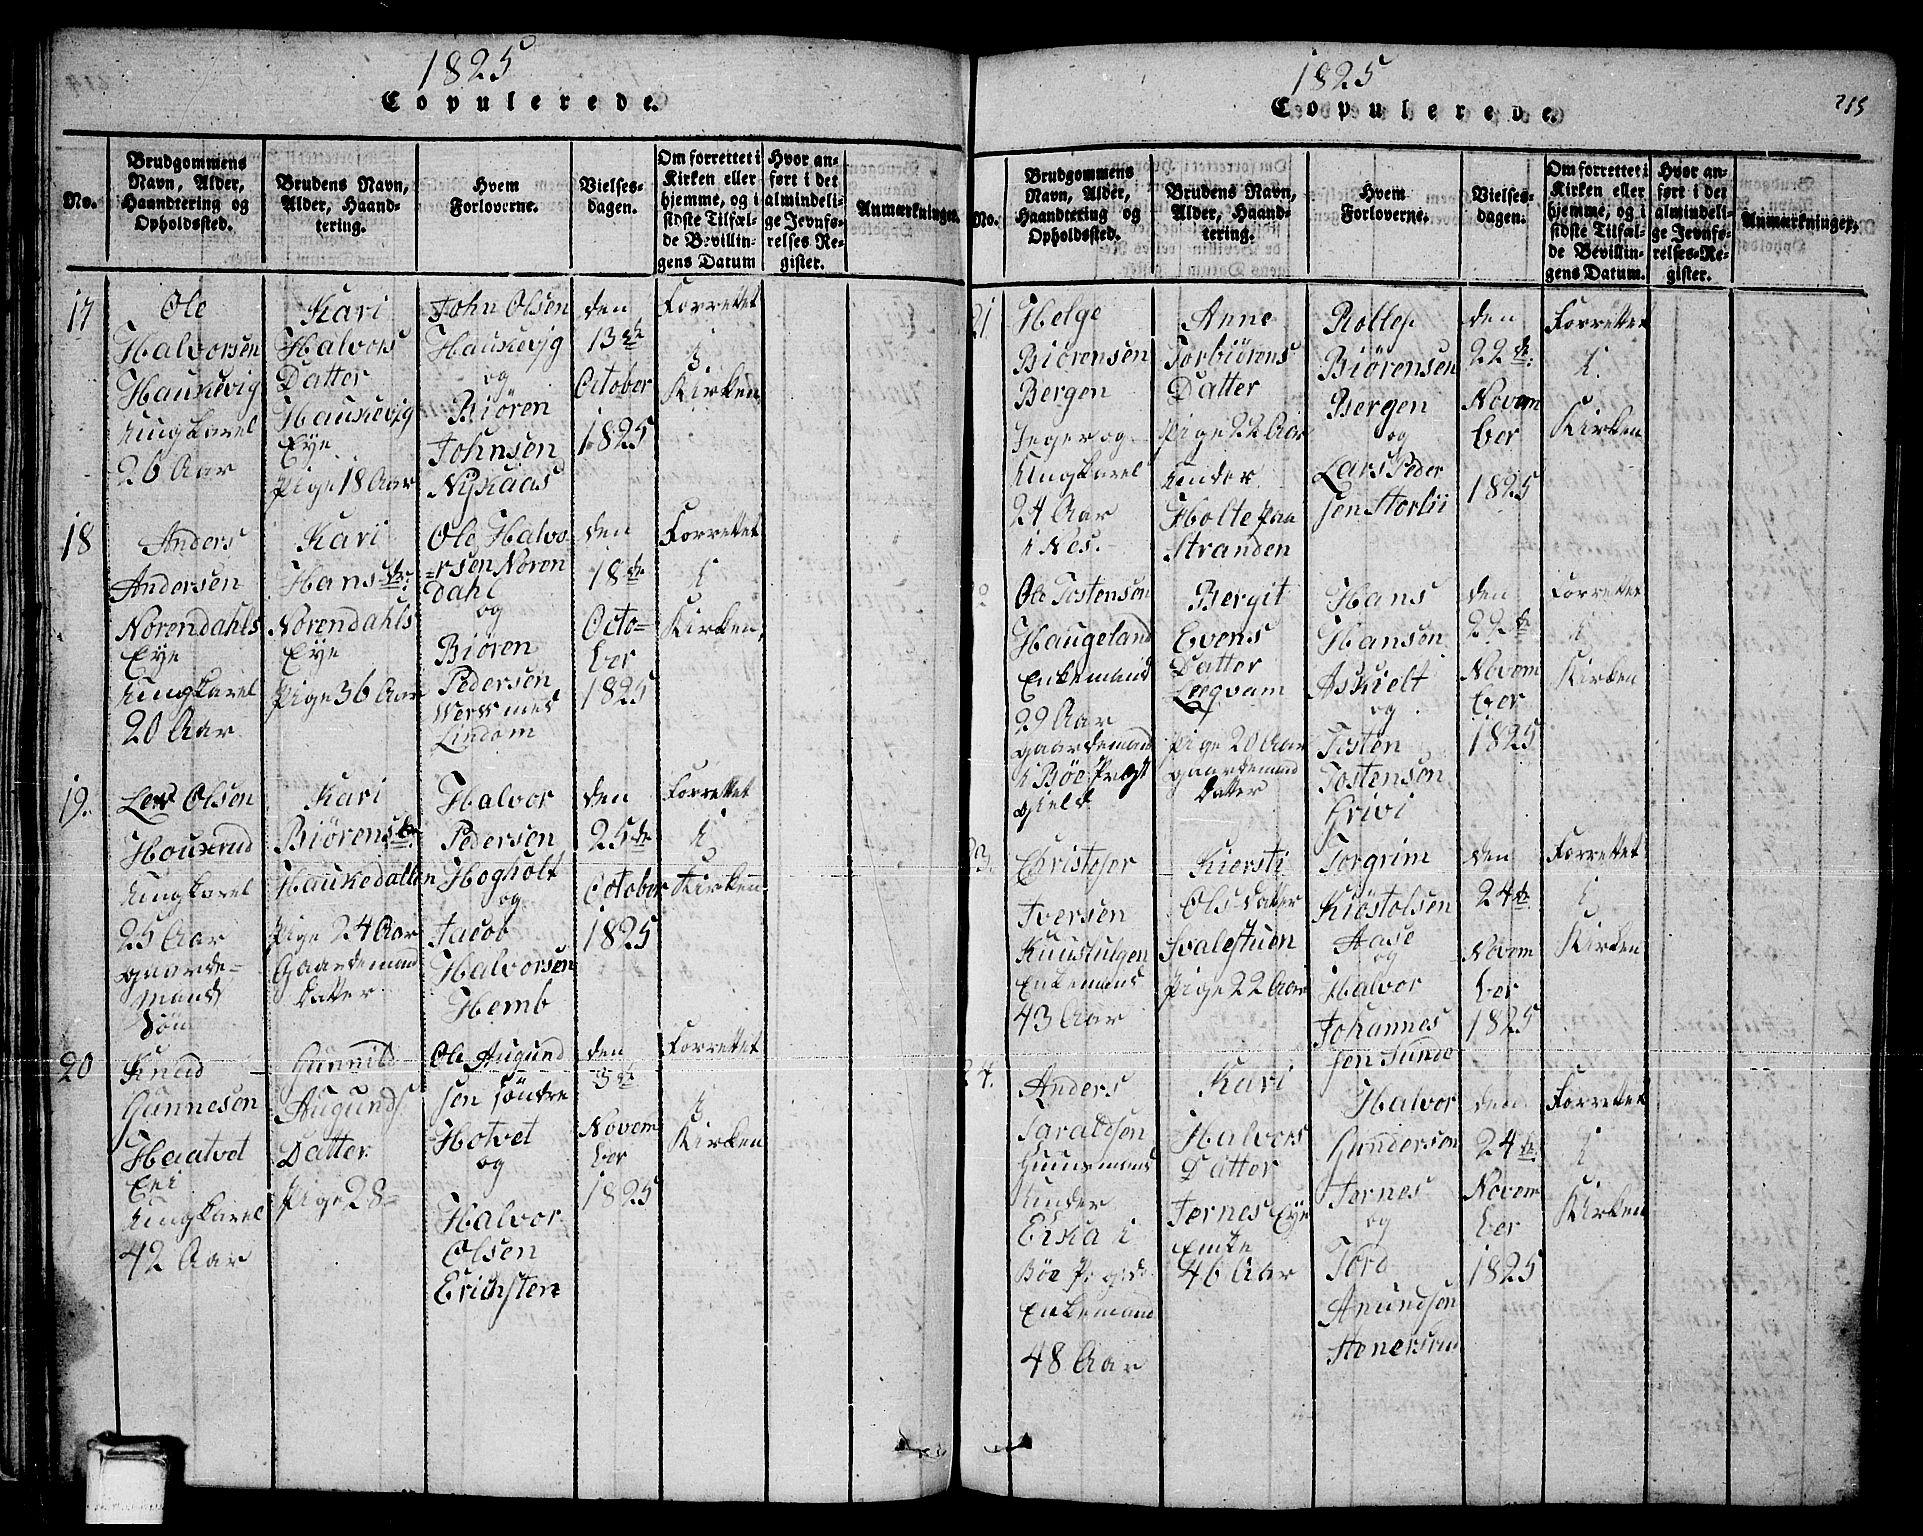 1825
Copulerede.
No.
Brudgommens
Navn, Alder,
Haandtering og
Opholdssted.
Brudens Navn,
Alder, Haand-
tering.
Hvem
Forloverne.
Vielses-
dagen.
Om forrettet i
Kirken eller
hjemme, og i
sidste Tilfæl-
de Bevillin-
gens Datum
Hvor an-
ført i det
almindeli-
ge Jevnfø-
relses-Re-
gister.
Anmærkninger.
17
Ole
Halvorsen
Haukevig
Ungkarel
26 Aar
Kari
Halvors
Datter
Haukevig
Eye
Pige 18 Aar
John Olsen
Haukevig
og
Biören
Johnsen
Nykaas
den
13de
October
1825
Forrettet
i
Kirken
18
Anders
Andersen
Norendahls
Eye
Ungkarel
20 Aar
Kari
Hansdr.
Norendahls
Eye
Pige 36 Aar
Ole Halvo
=rsen Noren
dahl
og
Biören
Pedersen
Lindom
den
18de
Octo=
ber
1825
Forrettet
i
Kirken
19.
Olsen
Houkerud
Ungkarel
25 Aar
gaarde=
mands
Sön
Kari
Biörensdr.
Haukedallen
Pige 24 Aar
Gaardemand
datter
Halvor
Pedersen
Hogholt
og
Jacob
Halvorsen
Hemb
den
25de
October
1825
Forrettet
i
Kirken
20
Knud
Gunnesön
Haatvet
Eei
Ungkarel
42 Aar
Gunnild
Augunds
Datter
Pige 28=
Ole Augund
sen söndre
Hotvet
og
Halvor
Olsen
Erichsten
den
3de
Novem
ber
1825
Forrettet
i
Kirken
1825
215
Copulerede.
No.
Brudgommens
Navn, Alder,
Haandtering og
Opholdssted.
Brudens Navn,
Alder, Haand-
tering.
Hvem
Forloverne.
Vielses-
dagen.
Om forrettet i
Kirken eller
hjemme, og i
sidste Tilfæl-
de Bevillin-
gens Datum.
Hvor an-
ført i det
almindeli-
ge Jevnfø-
relses-Re-
gister.
Anmærkninger.
21
Helge
Biörensen
Bergen
Jeger og
Ungkarel
24 Aar
i Nes.
Anne
Torbiörens
Datter
Pige 22 Aar
under
Holte paa
Stranden
Rollef
Biörensen
Bergen
og
Lars Peder
sen Storlii
den
22de
Novem
ber
1825
Forrettet
i
Kirken
Ole Tostensen
Haugeland
Enkemand
29 Aar
gaardemand
i Böe Præst
gield
Bergit
Evens
Datter
Leqvam
Pige 20 Aar
gaardemand
datter
Hans
Hansen
Askielt
og
Tosten
Tostensen
Grivi
den
22de
Novem
ber
1825
Forrettet
i
Kirken
Christofer
Iversen
Enkemand
43 Aar
Kiersti
Ols Datter
Svalestuen
Pige 22 Aar
Torgrim
Kiöstolsen
Aase
og
Halvor
Johannes
sen Sunde
den
24de
Novem
ber
1825
Forrettet
i
Kirken
24.
Anders
Taraldsen
Huusmand
under
Eika i
Böe
Enkemand
48 Aar
Kari
Halvors
Datter
Jernes Eye
Enke
46 Aar
Halvor
Gundersen
Jernes
og
Tord
Anundsen
Stenersrud
den
24de
Novem
ber
1825
Forrettet
i
Kirken